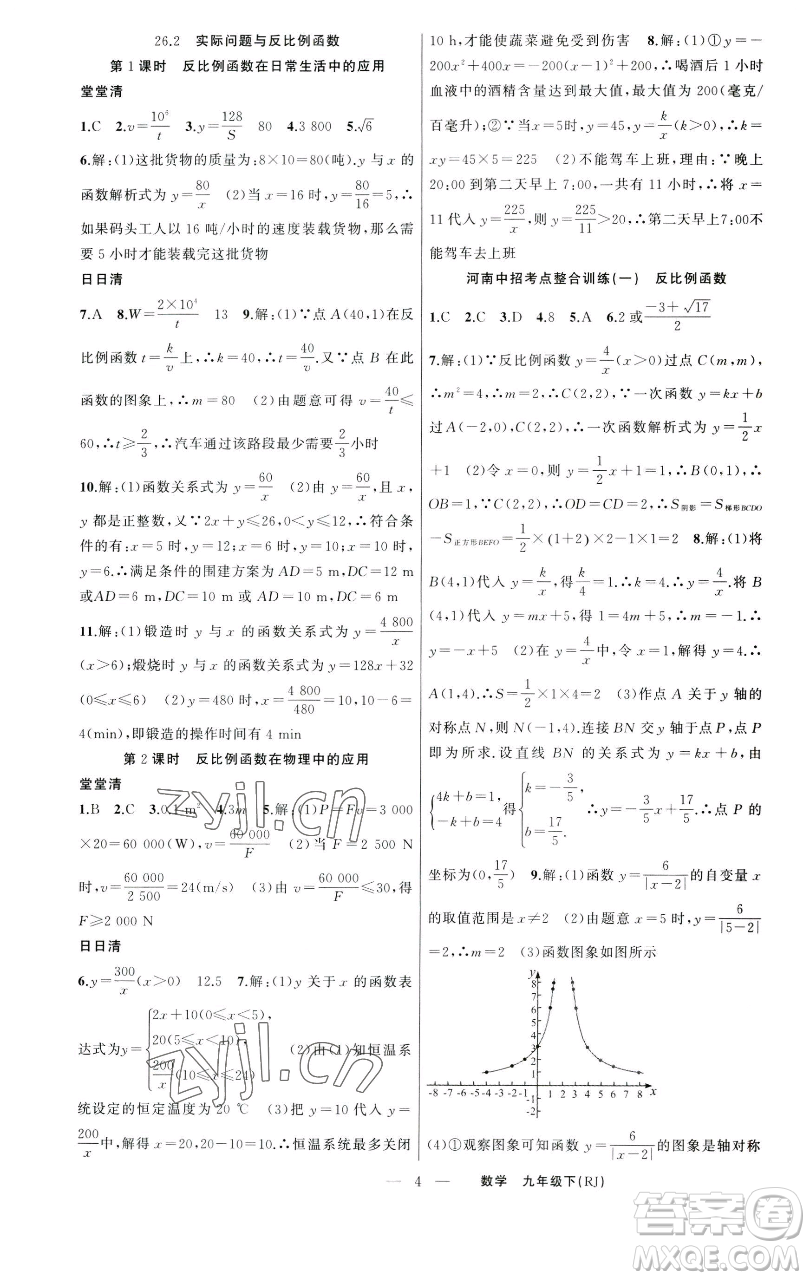 26.2 实际问题与反比例函数
第1课时 反比例函数在日常生活中的应用
堂堂清
1.C 2.v=10⁶/t 3.y=128/S 80 4.3 800 5.√6
6.解:(1)这批货物的质量为:8×10=80(吨).y 与 x 的
函数解析式为 y=80/x (2)当 x=16 时,y=80/16=5,∴
如果码头工人以 16 吨/小时的速度装载货物,那么需
要 5 小时才能装载完这批货物
日日清
7.A 8.W=2×10⁴/t 13 9.解:(1)∵点 A(40,1)在反
比例函数 t=k/v 上,∴k=40,∴t=40/v.又∵点 B 在此
函数的图象上,∴m=80 (2)由题意可得 v=40/t≤
60,∴t≥2/3,∴汽车通过该路段最少需要2/3小时
10.解:(1)函数关系式为 y=60/x (2)由 y=60/x,且 x,
y 都是正整数,又∵2x+y≤26,0<y≤12,∴符合条
件的有:x=5 时,y=12;x=6 时,y=10;x=10 时,
y=6.∴满足条件的围建方案为 AD=5 m,DC=12 m
或AD=6 m,DC=10 m或AD=10 m,DC=6 m
11.解:(1)锻造时 y 与 x 的函数关系式为 y=4 800/x
(x>6);煅烧时 y 与 x 的函数关系式为 y=128x+32
(0≤x≤6) (2)y=480 时,x=4 800/480=10,10-6=
4(min),即锻造的操作时间有 4 min
第2课时 反比例函数在物理中的应用
堂堂清
1.B 2.C 3.0.1 m² 4.3m 5.解:(1)P=Fv=3 000
×20=60 000(W),v=60 000/F (2)当 F=2 500 N
时,v=60 000/2 500=24(m/s) (3)由 v=60 000/F≤30,得
F≥2 000 N
日日清
6.y=300/x(x>0) 12.5 7.解:(1)y 关于 x 的函数表
达式为y={2x+10(0≤x<5), 20(5≤x<10), 200/x(10≤x≤24) (2)由(1)知恒温系
统设定的恒定温度为 20 ℃ (3)把 y=10 代入 y=
200/x中,解得 x=20,20-10=10.∴恒温系统最多关闭
10 h,才能使蔬菜避免受到伤害 8.解:(1)①y=
-200x²+400x=-200(x-1)²+200,∴喝酒后 1 小时
血液中的酒精含量达到最大值,最大值为 200(毫克/
百毫升);②∵当 x=5时,y=45,y=k/x(k>0),∴k=
xy=45×5=225 (2)不能驾车上班,理由:∵晚上
20:00 到第二天早上 7:00,一共有 11 小时,∴将 x=
11 代入 y=225/x,则 y=225/11>20,∴第二天早上7:00不
能驾车去上班
河南中招考点整合训练(一) 反比例函数
1.C 2.C 3.D 4.8 5.A 6.2 或(-3+√17)/2
7.解:∵反比例函数 y=4/x(x>0)过点 C(m,m),
∴m²=4,∴m=2,∴C(2,2),∵一次函数 y=kx+b
过点A(-2,0),C(2,2),∴一次函数解析式为 y=1/2x
+1 (2)令 x=0,得 y=1/2x+1=1,∴B(0,1),∴
OB=1,∵C(2,2),∴OD=CD=2,∴S阴影=S梯形BCDO
-S正方形BEFO=1/2×(1+2)×2-1×1=2 8.解:(1)将
B(4,1)代入 y=k/x,得k/4=1.∴k=4,∴y=4/x.将 B
(4,1)代入 y=mx+5,得 1=4m+5,∴m=-1.∴y
=-x+5 (2)在 y=4/x中,令 x=1,解得 y=4.∴
A(1,4).∴S=1/2×1×4=2 (3)作点 A 关于 y 轴的
对称点 N,则 N(-1,4).连接 BN 交 y 轴于点 P,点 P
即为所求.设直线 BN 的关系式为 y=kx+b,则
{4k+b=1, -k+b=4 得{k=-3/5, b=17/5. ∴y=-3/5x+17/5,∴点 P 的
坐标为(0,17/5) 9.解:(1)函数 y=6/|x-2|的自变量 x
的取值范围是 x≠2 (2)由题意 x=5 时,y=6/|5-2|
=2,∴m=2 (3)函数图象如图所示
y
8
7
6
5
4
3
2
1
-8 -7 -6 -5 -4 -3 -2 -1 0 1 2 3 4 5 6 7 8 x
-1
-2
(4)①观察图象可知函数 y=6/|x-2|的图象是轴对称
— 4 — 数学 九年级下(RJ)
zyjl.cn
zyjl.cn
答案圈
MXQE.COM